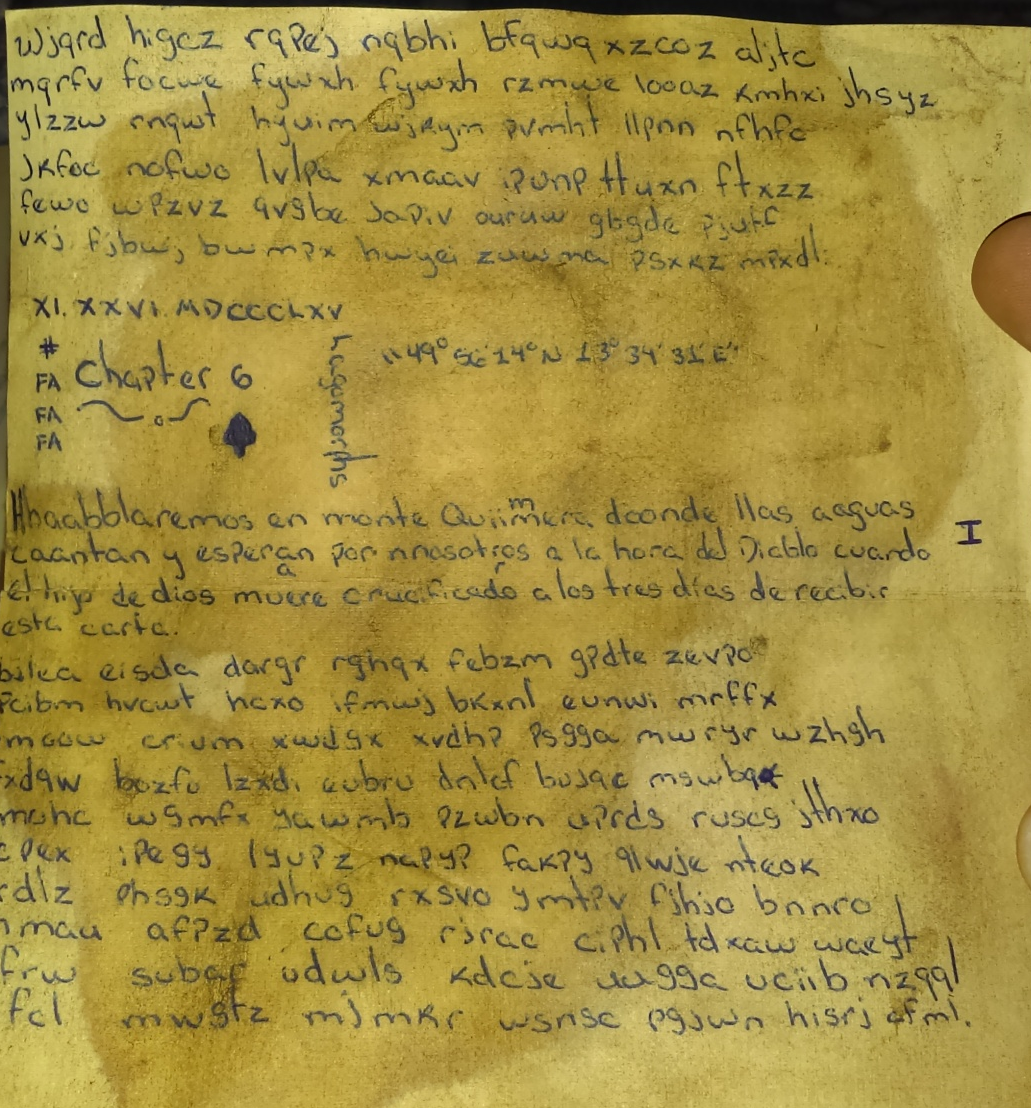 wjqrd higcz rqpej nqbhi bfqwq xzcoz aljtc
mqrfv focwe fywxh fywxh rzmwe looaz kmhxi jhsyz
ylzzw rnqwt hyuim wjkym pvmht llpnn nfhfc
jkfoc nofwo lvlpa xmaav ipunp ttuxn ftxzz
fewo wpzvz qvgbe japiv ouruw gbgde pjutc
vxj fjbwj bwmpx hwyei zuwma psxkz mpxdl.
XI. XXVI. MDCCCLXV
#
FA Chapter 6
FA
FA
hugomorphs
"49° 56' 14° N 13° 34' 31' E"
Hhaabblaremos en monte Quiimera doonde llas aaguas
caantan y esperaan por nnosotrros a la hora del Diablo cuando
el hijo de dios muere crucificado a los tres días de recibir
esta carta.
I
eisda dargr rghqx febzm gpdte zevpo
hvcwt hcxo ifmwj bkxnl eunwi mrffx
crium xwdgx xvdhp psgga mwryr wzhgh
bozfu lzxdi eubru dnlcf busqc
wgmfx yawmb pzwbn uprds ruscg jthxo
ipegy lyupz napyp fakpy qlwje nteok
phsgk udhug rxsvo ymtpv fjhjo bnnro
afpzd cofug rjrac ciphl tdxaw waeyt
udwls kdcje uugga uciib nzqql
mwgtz mjmkr wsnsc pgjwn hisrj efml.